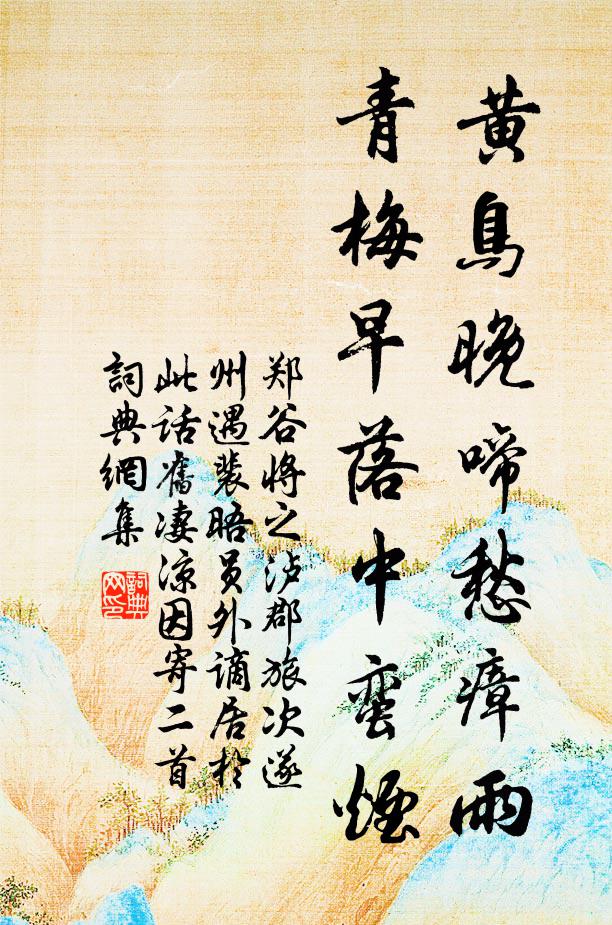 黄鳥晚啼愁瘴雨
青梅早落中蛮煙
郑谷将之泸郡旅次遂
州遇裴晤员外谪居於
此话舊凄凉因寄二首
詞典網集
詞典
网印